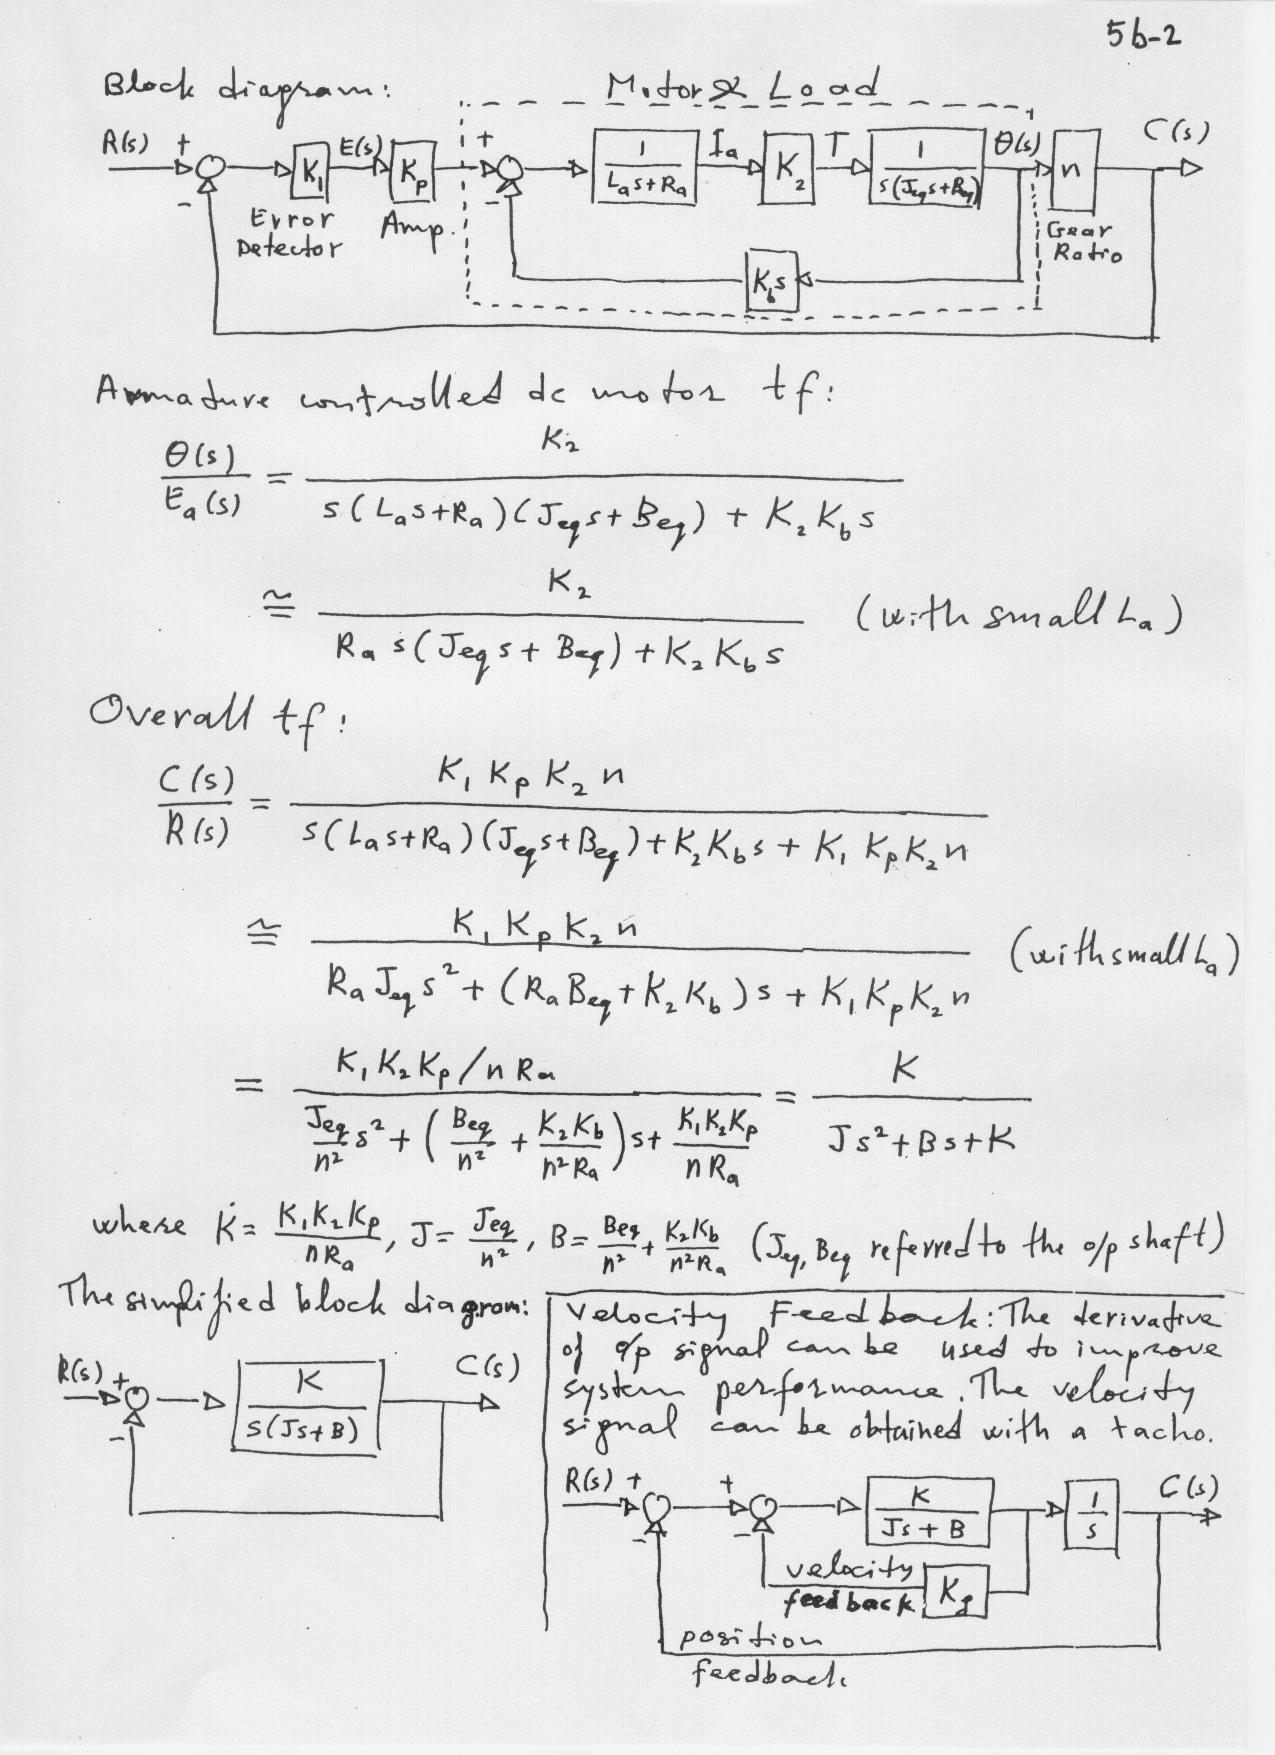 5b-2
Block diagram:
Motor & Load
R(s) + - K₁ E(s) Kp + - 1/(Las+Ra) Ia K₂ T 1/(s(Jeqs+Beq)) θ(s) n C(s)
Error Detector
Amp.
Gear Ratio
Kbs
Armature controlled dc motor tf:
θ(s)/Ea(s) = K₂ / (s(Las+Ra)(Jeqs+Beq) + K₂Kbs)
≅ K₂ / (Ra s(Jeqs+Beq) + K₂Kbs) (with small La)
Overall tf:
C(s)/R(s) = K₁KpK₂n / (s(Las+Ra)(Jeqs+Beq) + K₂Kbs + K₁KpK₂n)
≅ K₁KpK₂n / (RaJeqs² + (RaBeq+K₂Kb)s + K₁KpK₂n) (with small La)
= (K₁K₂Kp/nRa) / (Jeq/n² s² + (Beq/n² + K₂Kb/n²Ra)s + K₁K₂Kp/nRa) = K / (Js²+Bs+K)
where K = K₁K₂Kp/nRa, J = Jeq/n², B = Beq/n² + K₂Kb/n²Ra (Jeq, Beq referred to the o/p shaft)
The simplified block diagram:
R(s) + - K/(s(Js+B)) C(s)
Velocity Feedback: The derivative
of o/p signal can be used to improve
system performance. The velocity
signal can be obtained with a tacho.
R(s) + - + - K/(Js+B) 1/s C(s)
velocity
feedback Kg
position
feedback